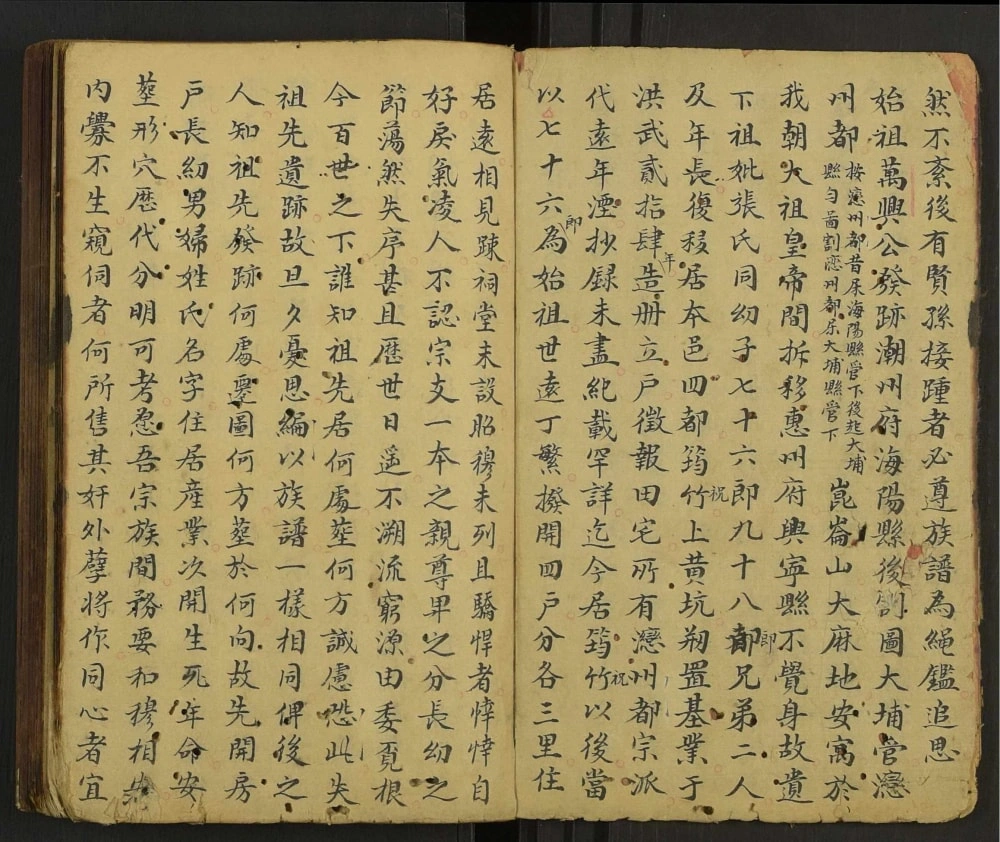 然不紊後有賢孫接踵者必尊族譜為繩鑑追思
始祖萬興公發跡潮州府海陽縣後割圖大埔管灣
州都
按灣州都昔屎海陽縣管下後趂大埔
縣勻畱割灣州都糸大埔縣管下
崑崙山大麻地安寓於
我朝大祖皇帝間拆移惠州府興寧縣不覺身故遺
下祖妣張氏同幼子七十六郎九十八郎兄弟二人
及年長復移居本邑四都筠竹上黃坑剏置基業于
祝
洪武貳拾肆造册立戶徵報田宅所有灣州都宗派
年
代遠年湮抄録未盡紀載罕詳迄今居筠竹以後當
祝
以七十六為始祖世遠丁繁撥開四戶分各三里住
郎
居遠相見踈祠堂未設昭穆未列且驕悍者悻悻自
好戾氣凌人不認宗支一本之親尊卑之分長幼之
節蕩然失序甚且歷世日遥不溯流窮源由委覓根
今百世之下誰知祖先居何處塟何方誠慮恐此失
祖先遺跡故旦夕憂思編以族譜一樣相同俾後之
人知祖先發跡何處遷圖何方塟於何向故先開房
戶長幼男婦姓氏名字住居産業次開生死年命安
塟形穴歷代分明可考忽吾宗族間務要和穆相
内釁不生窺伺者何所售其奸外孽將作同心者宜